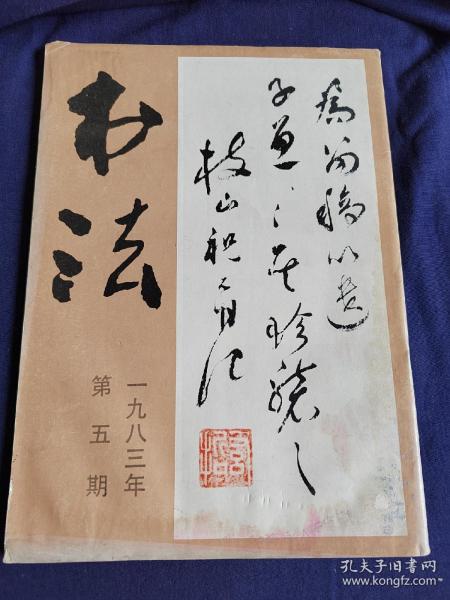 书法
一九八三年
第五期
為留稿以遺
子其珍之
枝山祝允明記
孔夫子旧书网
www.kongfz.com